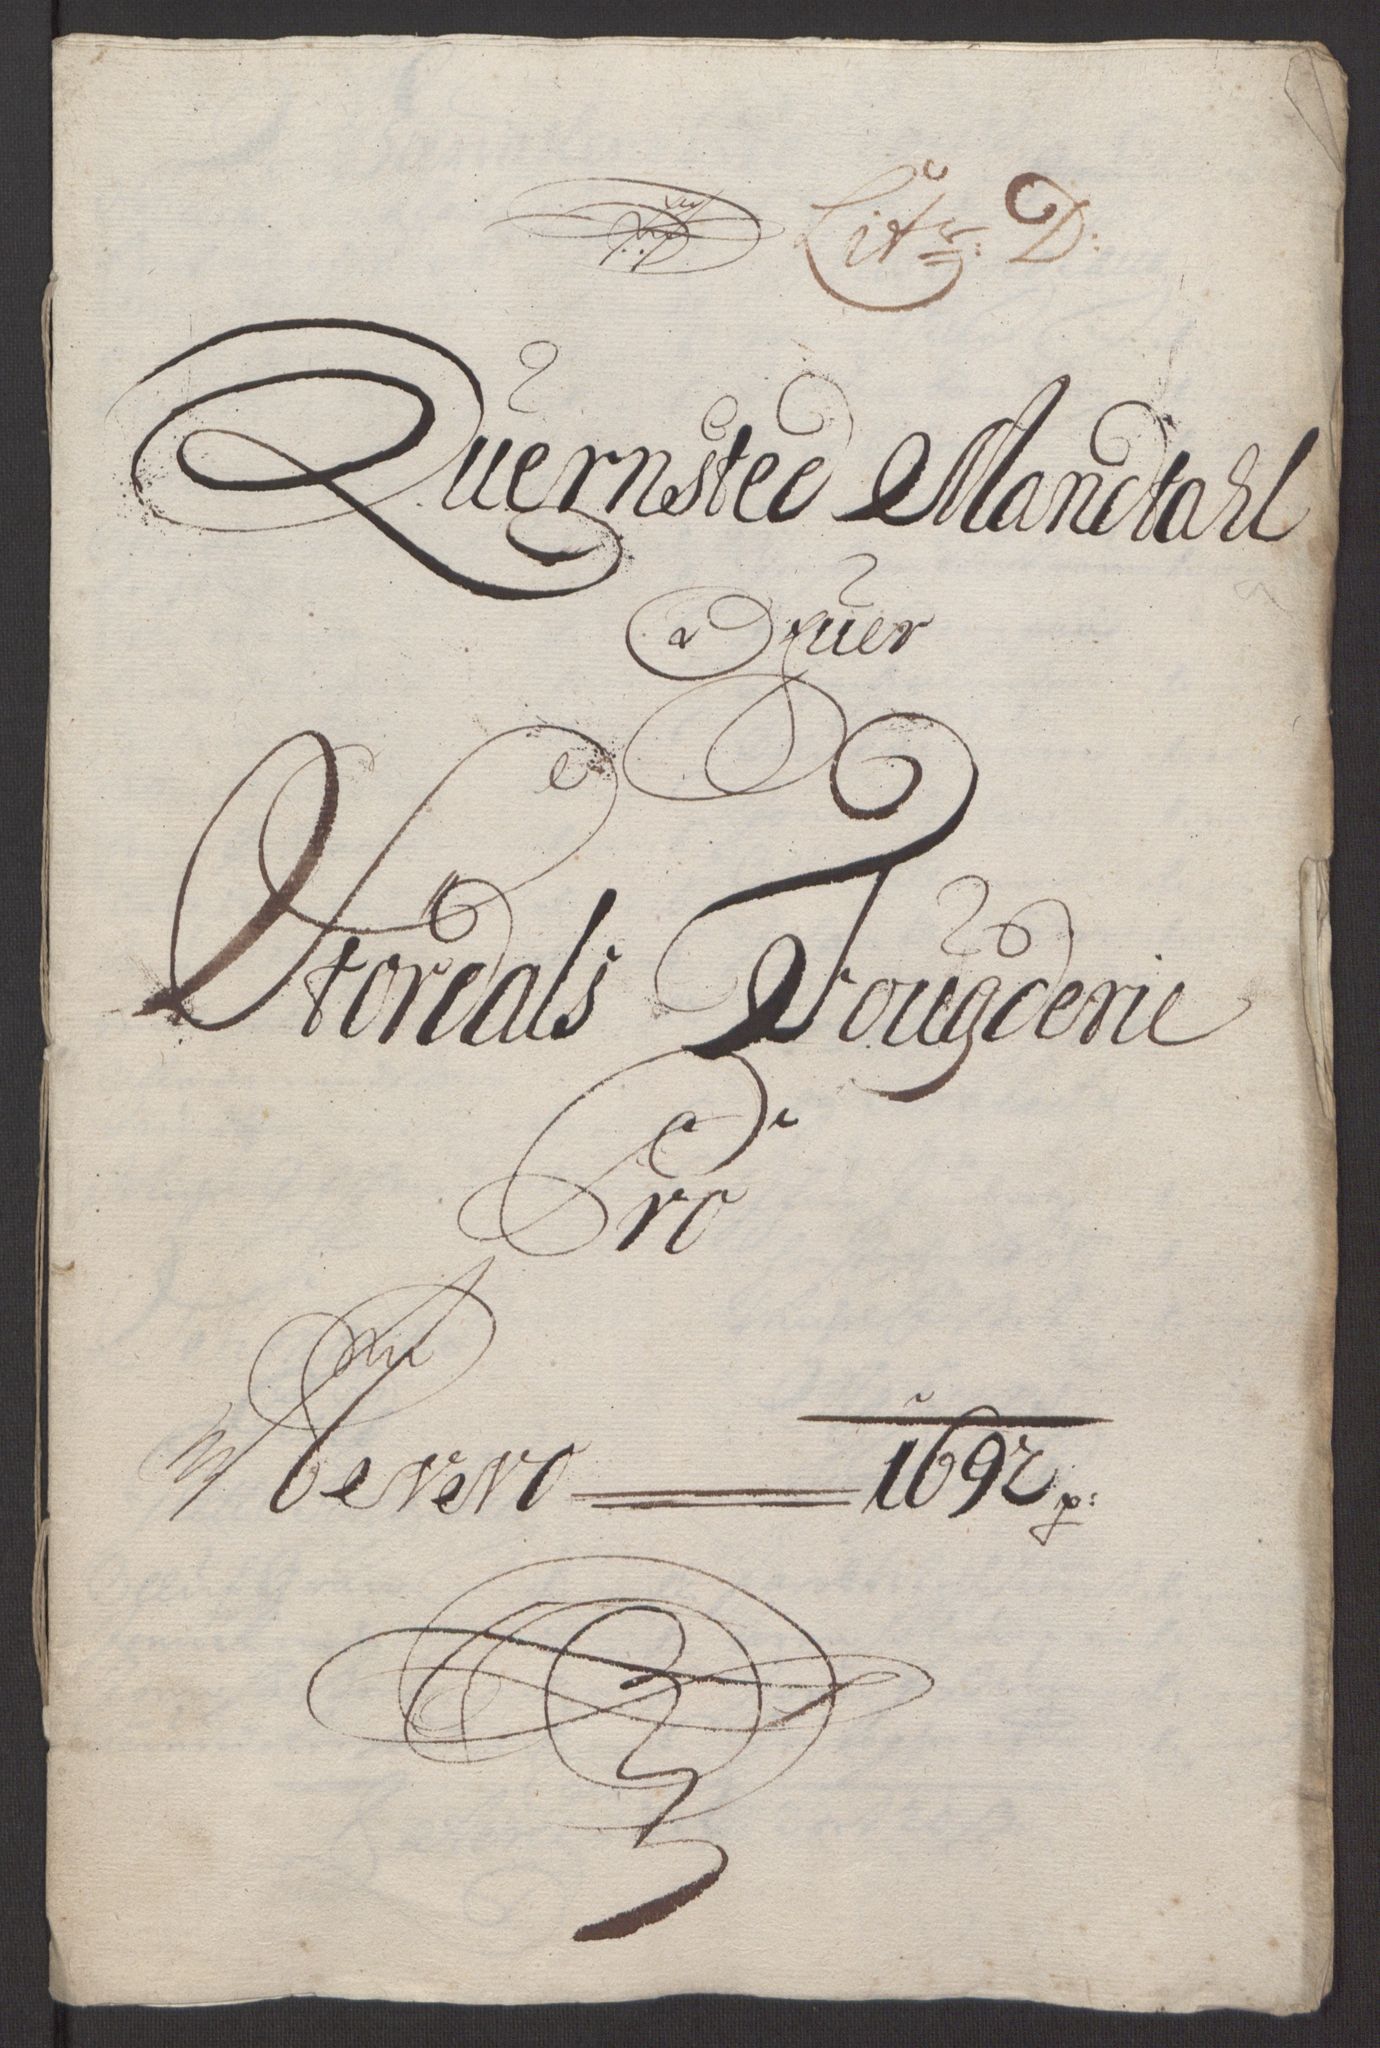 Litr: D:
Quernsted Mandtahl
Ofuer
Stordals Fougderie
Pro
Ao
1692